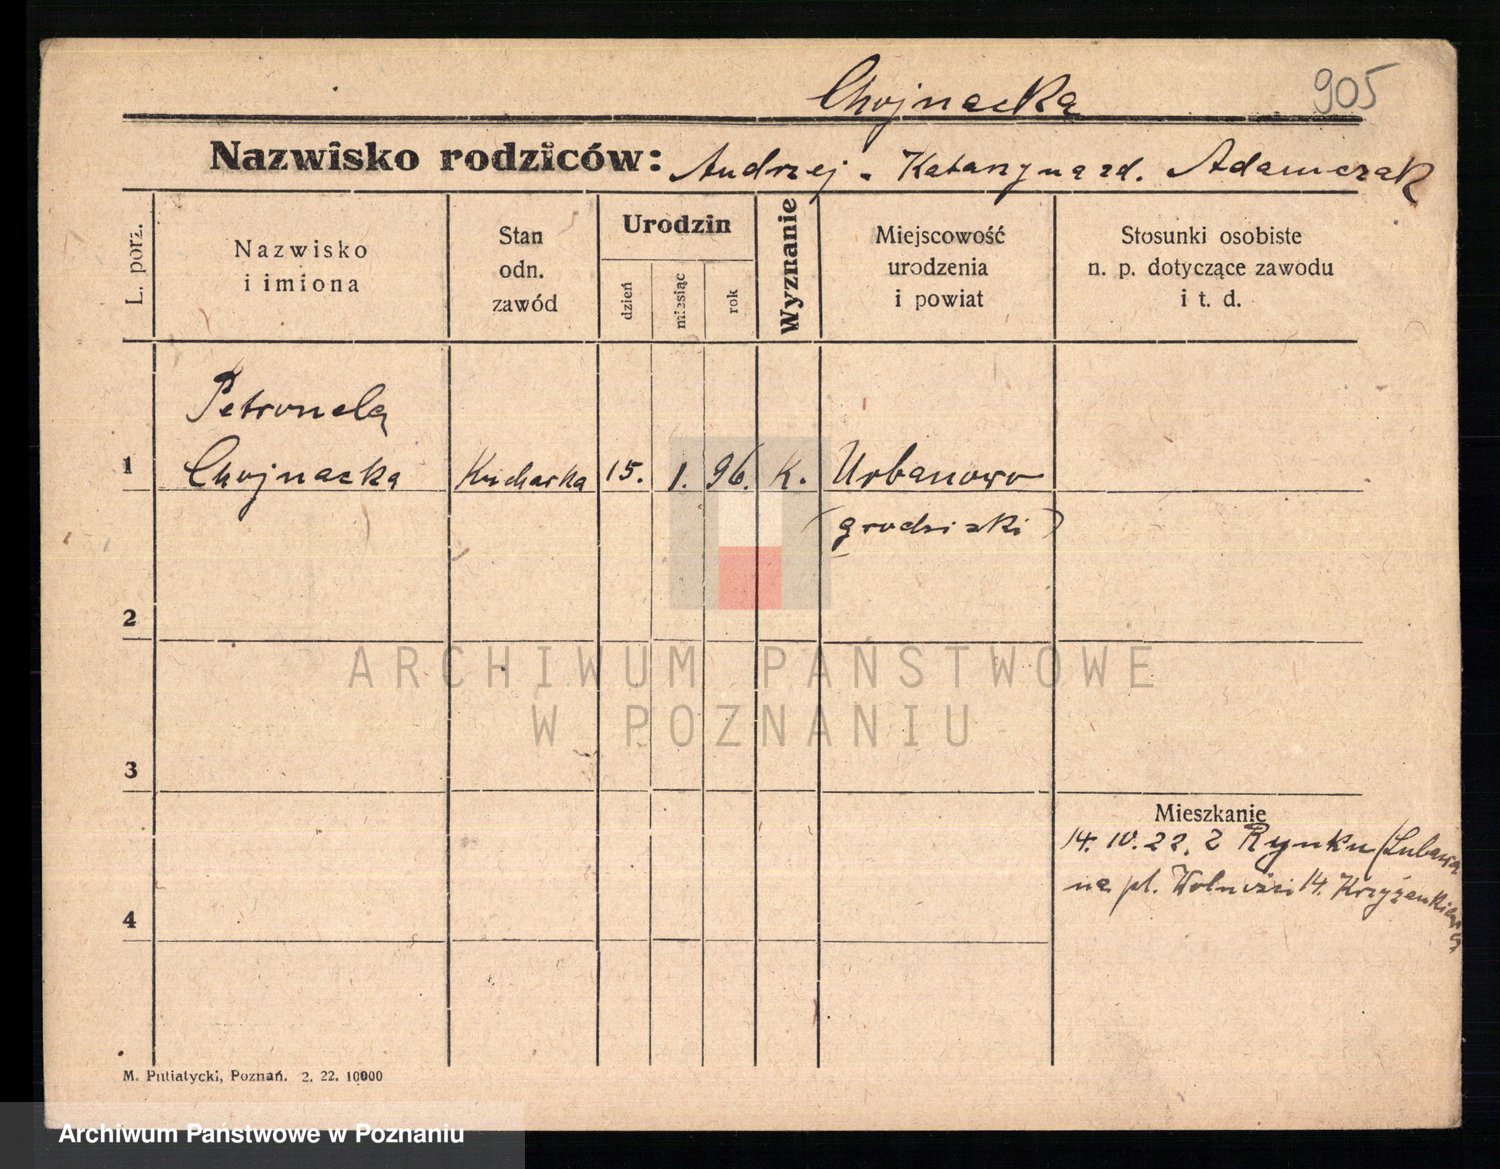 Chojnacka 905
Nazwisko rodziców: Andrzej - Katarzyna zd. Adamczak
L. porz.
Nazwisko
i imiona
Stan
odn.
zawód
Urodzin
dzień
miesiąc
rok
Wyznanie
Miejscowość
urodzenia
i powiat
Stosunki osobiste
n. p. dotyczące zawodu
i t. d.
Petronela
1 Chojnacka Kucharka 15. 1. 96. K. Urbanowo
(grodziski)
2
ARCHIWUM PAŃSTWOWE
W POZNANIU
3
Mieszkanie
14. IV. 22. z Rynku (Lubawa
na pl. Wolności 14.
4
M. Putiatycki, Poznań. 2. 22. 10000
Archiwum Państwowe w Poznaniu